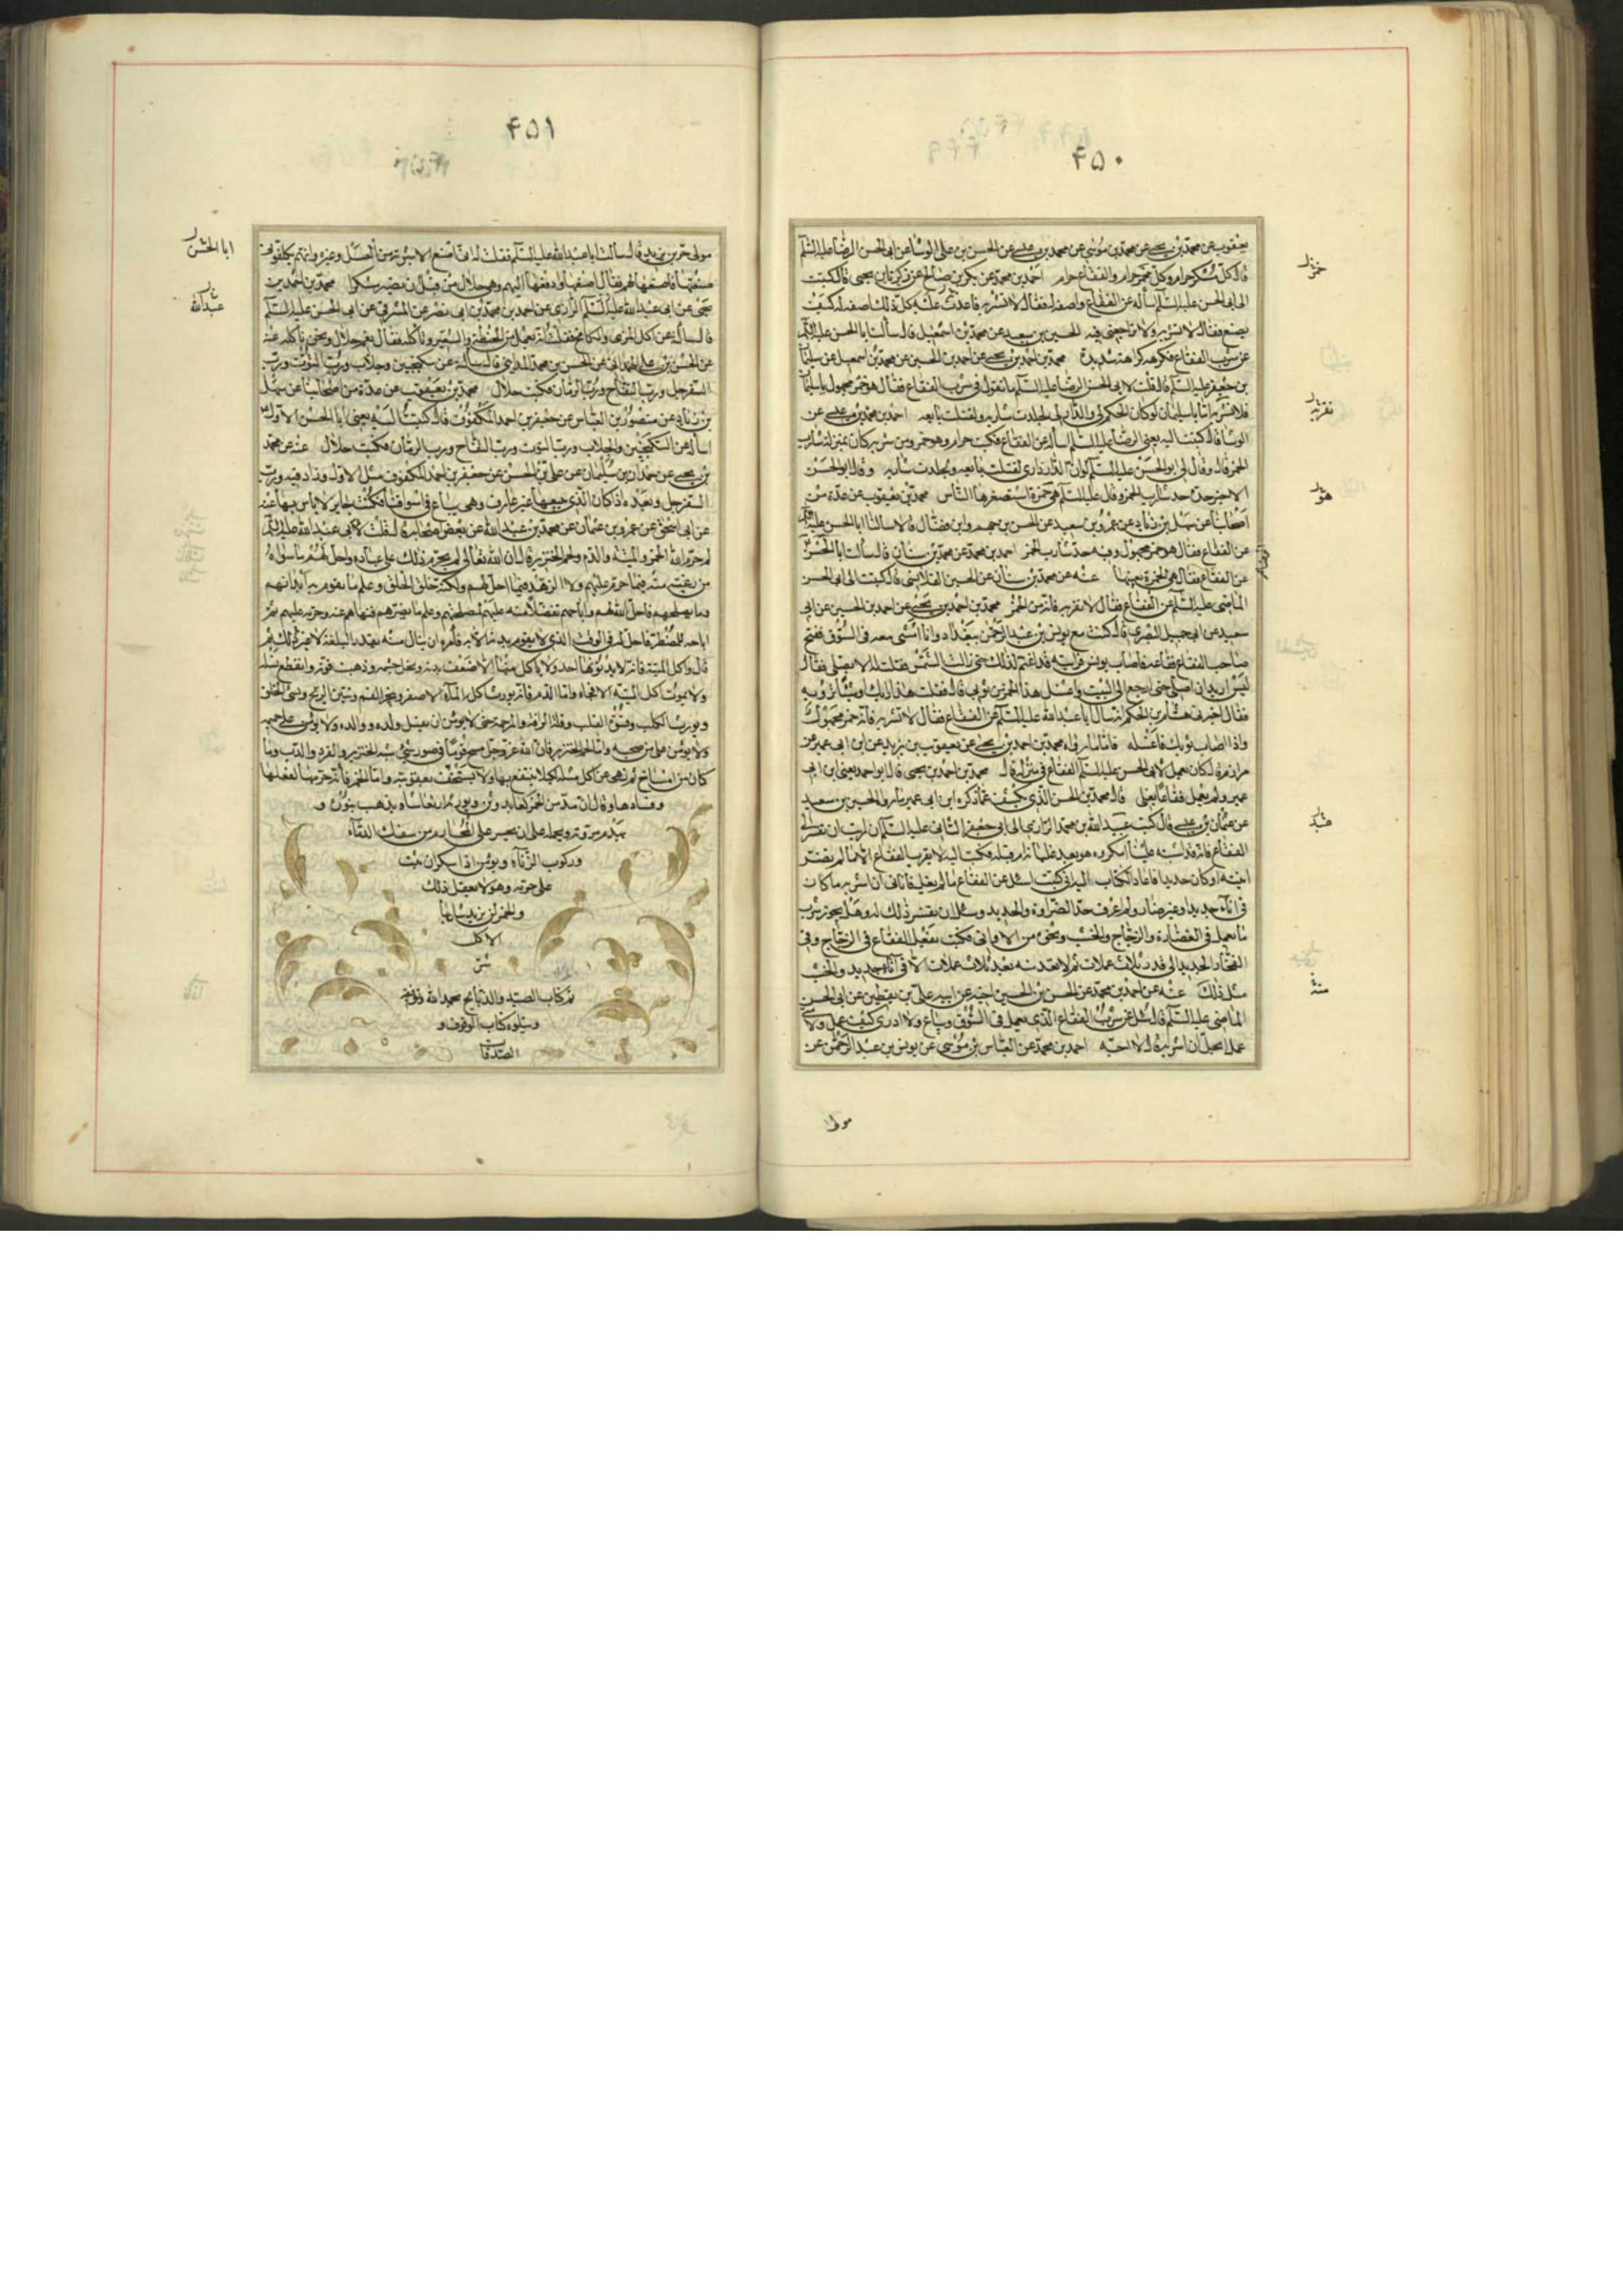 ۴۵۰
يعقوب عن محمد بن يحيى عن محمد بن موسى عن محمد بن عيسى عن الحسن بن على الوشا عن ابى الحسن الرضا عليه السلم
قال كل مسكر حرام وكل مخمر حرام والفقاع حرام احمد بن محمد عن بكر بن صالح عن زكريا بن يحيى قال كتبت
الى ابى الحسن عليه السلم اساله عن الفقاع واصفه له فقال لا تشربه فاعدت عليه كل ذلك اصفه له كيف
يصنع فقال لا تشربه ولا تراجعنى فيه الحسين بن سعيد عن محمد بن اسمعيل قال سالت ابا الحسن عليه السلم
عن شرب الفقاع فكرهه كراهة شديدة محمد بن احمد بن يحيى عن احمد بن الحسين عن محمد بن اسمعيل عن سليمان
بن جعفر عليه السلم قال قلت لابى الحسن الرضا عليه السلم ما تقول فى شرب الفقاع فقال هو خمر مجهول يا سليمان
فلا تشربه اما يا سليمان لو كان الحكم لى والدار لى لجلدت شاربه ولقتلت بايعه احمد بن محمد بن عيسى عن
الوشا قال كتبت اليه يعنى الرضا عليه السلم اساله عن الفقاع فكتب حرام وهو خمر ومن شربه كان بمنزلة شارب
الخمر قال وقال لى ابو الحسن عليه السلم لو ان الدار دارى لقتلت بايعه ولجلدت شاربه وقال ابو الحسن
الاخير حده حد شارب الخمر وقال عليه السلم هى خمرة استصغرها الناس محمد بن يعقوب عن عدة من
اصحابنا عن سهل بن زياد عن عمرو بن سعيد عن الحسن بن جهم وابن فضال قالا سالنا ابا الحسن عليه السلم
عن الفقاع فقال هو خمر مجهول وفيه حد شارب الخمر احمد بن محمد عن محمد بن سنان قال سالت ابا الحسن
عن الفقاع فقال هى الخمرة بعينها عنه عن محمد بن سنان عن الحسين القلانسى قال كتبت الى ابى الحسن
الماضى عليه السلم عن الفقاع فقال لا تقربه فانه من الخمر محمد بن احمد بن يحيى عن احمد بن الحسين عن ابى
سعيد عن ابى جميل البصرى قال كنت مع يونس بن عبد الرحمن ببغداد وانا امشى معه فى السوق ففتح
صاحب الفقاع فقاعه فاصاب يونس فرايته قد اغتم لذلك حتى زالت الشمس فقلت له الا تصلى فقال
ليس اريد ان اصلى حتى ارجع الى البيت واغسل هذا الخمر من ثوبى قال فقلت هذا رايك او شئ ترويه
فقال اخبرنى هشام بن الحكم انه سال ابا عبد الله عليه السلم عن الفقاع فقال لا تشربه فانه خمر مجهول
واذا اصاب ثوبك فاغسله فاما ما رواه محمد بن احمد بن يحيى عن يعقوب بن يزيد عن ابن ابى عمير عن
مرازم قال كان يعمل لابى الحسن عليه السلم الفقاع فى منزله قال محمد بن احمد بن يحيى قال ابو احمد يعنى ابن ابى
عمير ولم يعمل فقاع يغلى قال محمد بن الحسن الذى يكشف عما ذكره ابن ابى عمير ما رواه الحسين بن سعيد
عن عثمان بن عيسى قال كتب عبيد الله بن محمد الرازى الى ابى جعفر الثانى عليه السلم ان رايت ان تفسر لى
الفقاع فانه قد اشتبه علينا امكروه هو بعد غليانه ام قبله فكتب اليه لا تقرب الفقاع الا ما لم يضر
انيته او كان جديدا فاعاد الكتاب اليه انى كتبت اسئل عن الفقاع ما لم يغل فاتانى ان اشربه ما كان
فى اناء جديد او غير ضار ولم اعرف حد الضراوة والجديد وسئل ان يفسر ذلك له وهل يجوز شرب
ما يعمل فى الغضارة والزجاج والخشب ونحوه من الاوانى فكتب يفعل الفقاع فى الزجاج وفى
الفخار الجديد الى قدر ثلاث عملات ثم لا تعد منه بعد ثلاث عملات الا فى اناء جديد والخشب
مثل ذلك عنه عن احمد بن محمد عن الحسن بن الحسين اخيه عن ابيه على بن يقطين عن ابى الحسن
الماضى عليه السلم قال سئل عن شرب الفقاع الذى يعمل فى السوق ويباع ولا ادرى كيف عمل ولا متى
عمل ايحل ان اشربه قال لا احبه احمد بن محمد عن العباس بن موسى عن يونس بن عبد الرحمن عن
مولى
هو
منه
۴۵۱
مولى حر بن يزيد قال سالت ابا عبد الله عليه السلم فقلت له انا نصنع الاشربة من العسل وغيره وانهم يكلفونى
صنعتها فاصنعها لهم فقال اصنعها وادفعها اليهم وهى حلال من قبل ان تصير مسكرا محمد بن احمد بن
يحيى عن ابى عبد الله عليه السلم الرازى عن احمد بن محمد بن ابى نصر عن المشرقى عن ابى الحسن عليه السلم
قال سالته عن اكل المرى والكامخ فقلت انه يعمل من الحنطة والشعير وناكله فقال نعم حلال ونحن ناكله عنه
عن الحسن بن على الهمدانى عن الحسن بن محمد المداينى قال سالته عن سكنجبين وجلاب ورب التوت ورب
السفرجل ورب التفاح ورب الرمان فكتب حلال محمد بن يعقوب عن عدة من اصحابنا عن سهل
بن زياد عن منصور بن العباس عن جعفر بن احمد المكفوف قال كتبت اليه يعنى ابا الحسن الاول
اساله عن السكنجبين والجلاب ورب التوت ورب التفاح ورب الرمان فكتب حلال عنه عن محمد
بن يحيى عن حمدان بن سليمان عن على بن الحسن عن جعفر بن احمد المكفوف مثل الاول وزاد فيه ورب
السفرجل وبعده اذا كان الذى يبيعها غير عارف وهى تباع فى اسواقنا فكتب جايز لا باس بها عنه
عن ابى اسحق عن عمرو بن عثمان عن محمد بن عبد الله عن بعض اصحابه قال قلت لابى عبد الله عليه السلم
لم حرم الله الخمر والميتة والدم ولحم الخنزير قال ان الله تعالى لم يحرم ذلك على عباده واحل لهم ما سواه
من رغبة منه فيما حرم عليهم ولا الزهد فيما احل لهم ولكنه خلق الخلق وعلم ما يقوم به ابدانهم
وما يصلحهم فاحل الله لهم واباحهم تفضلا منه عليهم لمصلحتهم وعلم ما يضرهم فنهاهم عنه وحرمه عليهم ثم
اباحه للمضطر فاحل له فى الوقت الذى لا يقوم بدنه الا به فامره ان ينال منه بقدر البلغة لا غير ذلك ثم
قال واكل الميتة فانه لا يدنو منها احد ولا ياكل منها الا ضعف بدنه ونحل جسمه وذهبت قوته وانقطع نسله
ولا يموت اكل الميتة الا فجاة واما الدم فانه يورث اكله المآء الاصفر ويبخر الفم وينتن الريح ويسئ الخلق
ويورث الكلب وقسوة القلب وقلة الرافة والرحمة حتى لا يؤمن ان يقتل ولده ووالده ولا يؤمن على حميمه
ولا يؤمن على من صحبه واما لحم الخنزير فان الله عز وجل مسخ قوما فى صور شئ شبه الخنزير والقرد والدب وما
كان من امساخ ثم نهى عن اكل مثله لكيلا ينتفع بها ولا يستخف بعقوبته واما الخمر فانه حرمها لفعلها
وفسادها وقال ان مدمن الخمر كعابد وثن ويورثه ارتعاشا ويذهب بنوره و
يهدم مروته ويحمله على ان يجسر على المحارم من سفك الدمآء
وركوب الزناء ويؤمن اذا سكر ان يثب
على حرمه وهو لا يعقل ذلك
والخمر لن يزيد شاربها
الا كل
شر
تم كتاب الصيد والذبايح بحمد الله وتوفيقه
ويتلوه كتاب الوقوف و
الصدقات
ابا الحسن
عبد الله